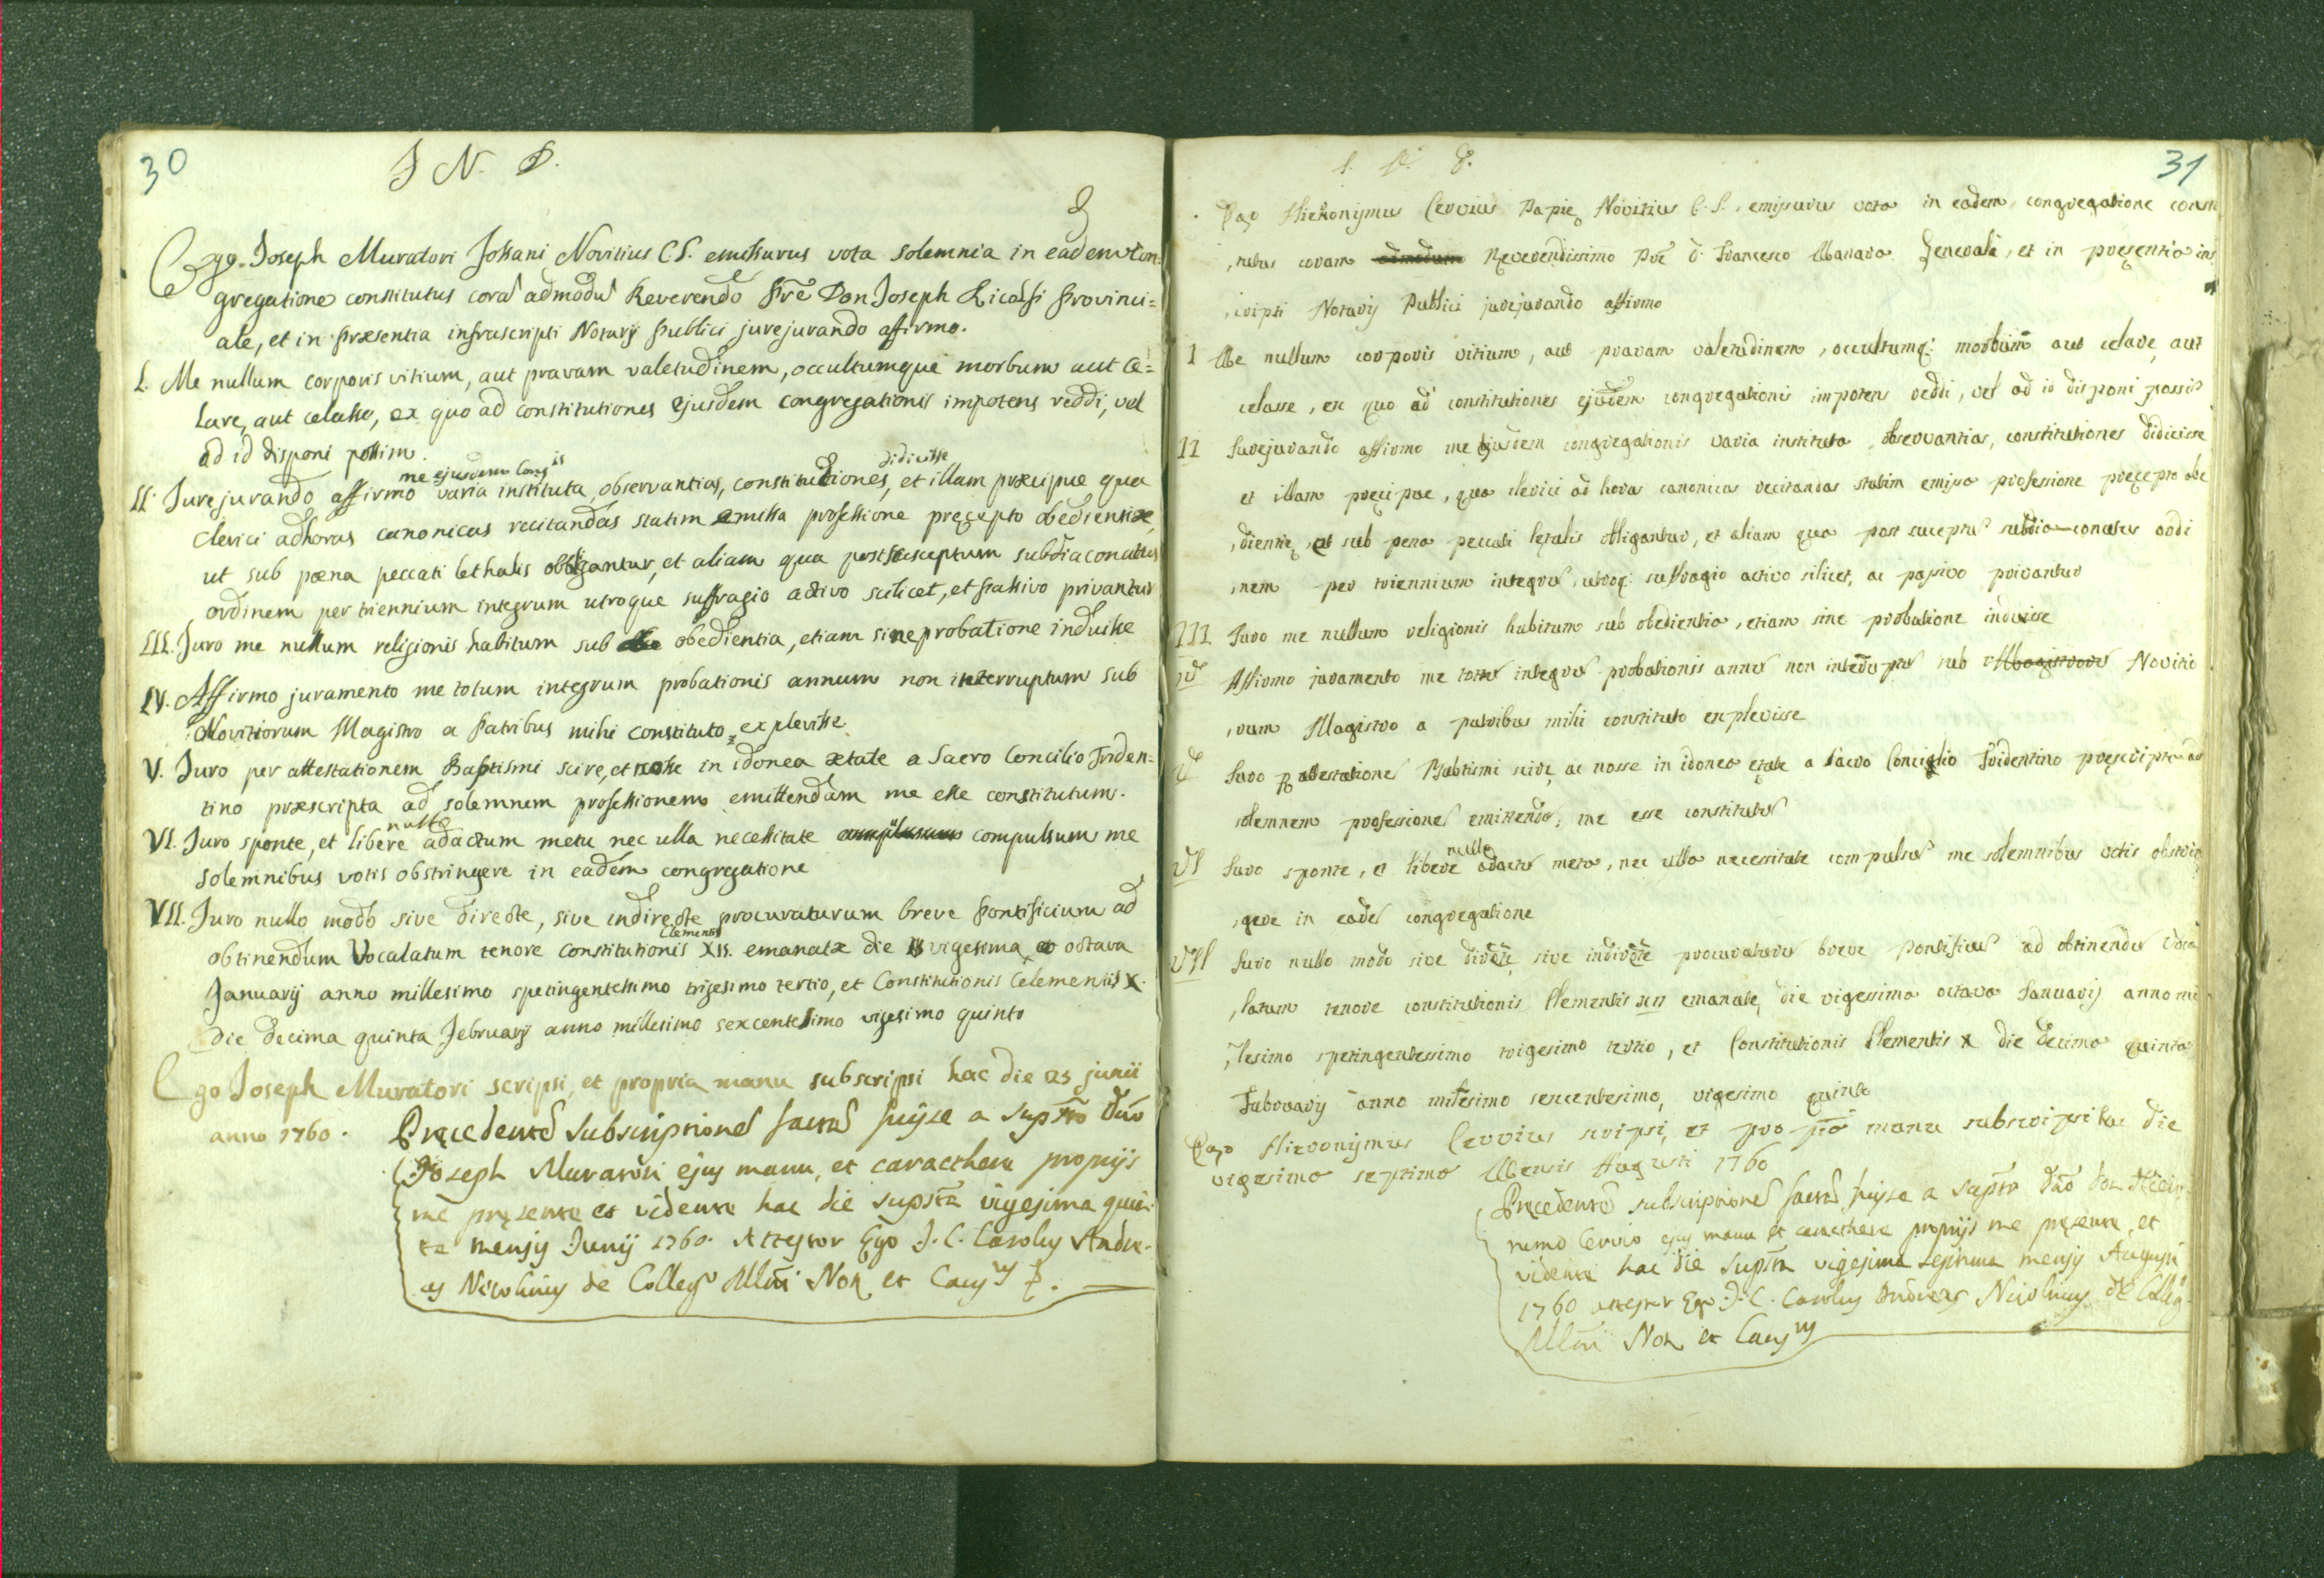 30
I N. D.
Ego Joseph Muratori Jossani Novitius C.S. emissurus vota solemnia in eadem Con=
gregatione constitutus corã admodũ Reverendo Prẽ Don Joseph Ricalsi Provinci=
ale, et in præsentia infrascripti Notarij Publici jurejurando affirmo.
I. Me nullum corporis vitium, aut pravam valetudinem, occultumque morbum aut ce=
lare, aut celasse, ex quo ad constitutiones ejusdem congregationis impotens reddi, vel
ad id disponi possim.
me ejusdem Congis
didicisse
II. Jurejurando affirmo varia instituta, observantias, constitutiones, et illam præcipue qua
clerici ad horas canonicas recitandas statim emissa professione pręcepto obedientiæ,
ut sub pœna peccati lethalis obligantur, et aliam qua post susceptum subdiaconatus
ordinem per triennium integrum utroque suffragio activo scilicet, et passivo privantur
III. Juro me nullum religionis habitum sub obedientia, etiam sine probatione induisse
IV. Affirmo juramento me totum integrum probationis annum non interruptum sub
Novitiorum Magistro a Patribus mihi constituto explevisse
V. Juro per attestationem Baptismi scire, et nosse in idonea ætate a Sacro Concilio Triden=
tino præscripta ad solemnem professionem emittendam me esse constitutum.
nullo
VI. Juro sponte, et libere adactum metu nec ulla necessitate compulsum me
solemnibus votis obstringere in eadem congregatione
VII. Juro nullo modo sive directe, sive indirecte procuraturum breve Pontificium ad
Clementis
obtinendum Vocalatum tenore constitutionis XII. emanatæ die vigesima octava
Januarij anno millesimo spetingentessimo trigesimo tertio, et Constitutionis Celementis X.
die decima quinta Februarij anno millesimo sexcentesimo vigesimo quinto
Ego Joseph Muratori scripsi, et propria manu subscripsi hac die 25 junii
anno 1760.
Pręcedentẽ subscriptionẽ factã fuisse a supto Dño
Joseph Muratori ejus manu, et caracthere proprijs
me pręsente et vidente hac die supstã vigesima quin-
ta mensis Junij 1760. Attestor Ego J. C. Carolus Andre-
as Nicolinus de Collego Mlñi Not. et Causys
31
Ego Hieronymus Cervius Papię Novitius C.S. emissurus vota in eadem congregatione consti
,tutus coram admodum Reverendissimo Prẽ D. Francesco Manara Generali, et in pręsentia infr
,scripti Notarij Publici jurejurando affirmo
I Me nullum corporis vitium, aut pravam valetudinem, occultumq: morbum aut celare, aut
celasse, ex quo ad constitutiones ejusdem congregationis impotens reddi, vel ad id disponi possim
II Jurejurando affirmo me ejusdem congregationis varia instituta, observantias, constitutiones didicisse
et illam pręcipue, qua clerici ad horas canonicas recitandas statim emissa professione pręcepto obe
,dientię, ut sub pena peccati letalis obligantur, et aliam qua post suceptũ subdiaconatus ordi
,nem per triennium integrũ, utroq: suffragio activo silicet, ac passivo privantur
III Juro me nullum religionis habitum sub obedientia, etiam sine probatione induisse
IV Affirmo juramento me totũ integrũ probationis annũ non interuptũ sub Magistrorũ Novitio
,rum Magistro a patribus mihi constituto explevisse
V Juro p attestationẽ Babtismi scire, ac nosse in idonea ętate a sacro Conciglio Tridentino pręscripta ad
solemnem professionẽ emittendã, me esse constitutũ
nullo
VI Juro sponte, et libere adactũ metu, nec ulla necessitate compulsũ me solemnibus votis obstrin
,gere in eadẽ congregatione
VII Juro nullo modo sive directe, sive indirecte procuraturũ breve pontificiũ ad obtinendũ voca
,latum tenore constitutionis Clementis XII emanatę die vigessima octava Januarij anno mi
,lesimo spetingentessimo trigesimo tertio, et Constitutionis Clementis X die decima quinta
Fabruarij anno milesimo sexcentesimo, vigesimo quinto
Ego Hieronymus Cervius scripsi, et propria manu subscripsi hac die
vigesima septima Mensis Augusti 1760
Pręcedentẽ subscriptionẽ factã fuisse a suptõ Dño Don Hiero-
nimo Cervio ejus manu et caracthere proprijs me pręsente, et
vidente hac die suptã vigesima septima mensis Augusti
1760 attestor Ego J. C. Carolus Andreas Nicolinus de Colleg.
Mlñi Not. et Causys